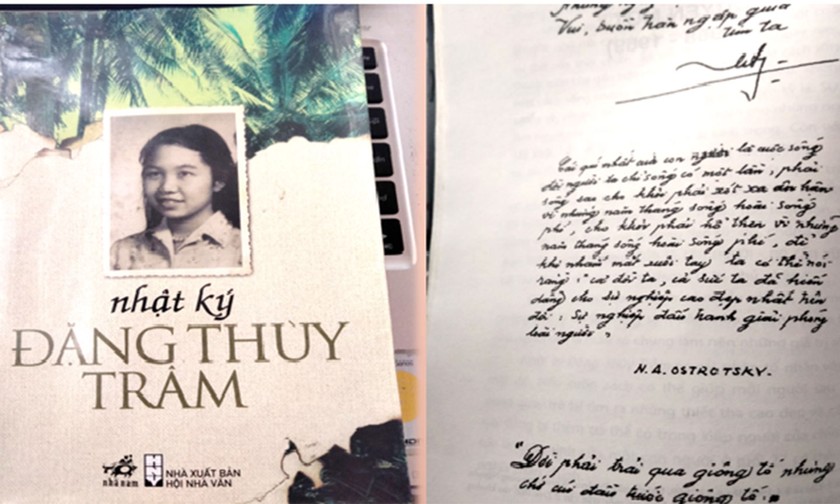 nhật ký
ĐẶNG THÙY
TRÂM
nhã nam
NHÀ XUẤT BẢN
HỘI NHÀ VĂN
Vui, buồn hãn ngập giữa
tim ta
Cái quí nhất của con người là cuộc sống
đời người ta chỉ sống có một lần, phải
sống sao cho khỏi phải xót xa ân hận
vì những năm tháng sống hoài sống
phí, cho khỏi phải hổ thẹn vì những
năm tháng sống hoài sống phí, để
khi nhắm mắt xuôi tay ta có thể nói
rằng: "cả đời ta, cả sức ta đã hiến
dâng cho sự nghiệp cao đẹp nhất trên
đời: sự nghiệp đấu tranh giải phóng
loài người"
N. A. OSTROTSKY.
"Đời phải trải qua giông tố nhưng
chớ cúi đầu trước giông tố."